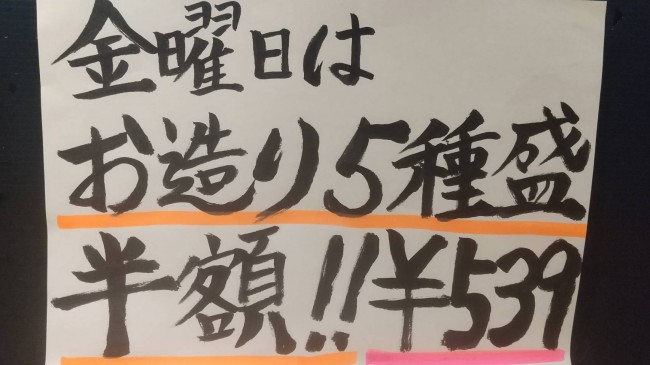 金曜日は
お造り5種盛
半額!! ¥539